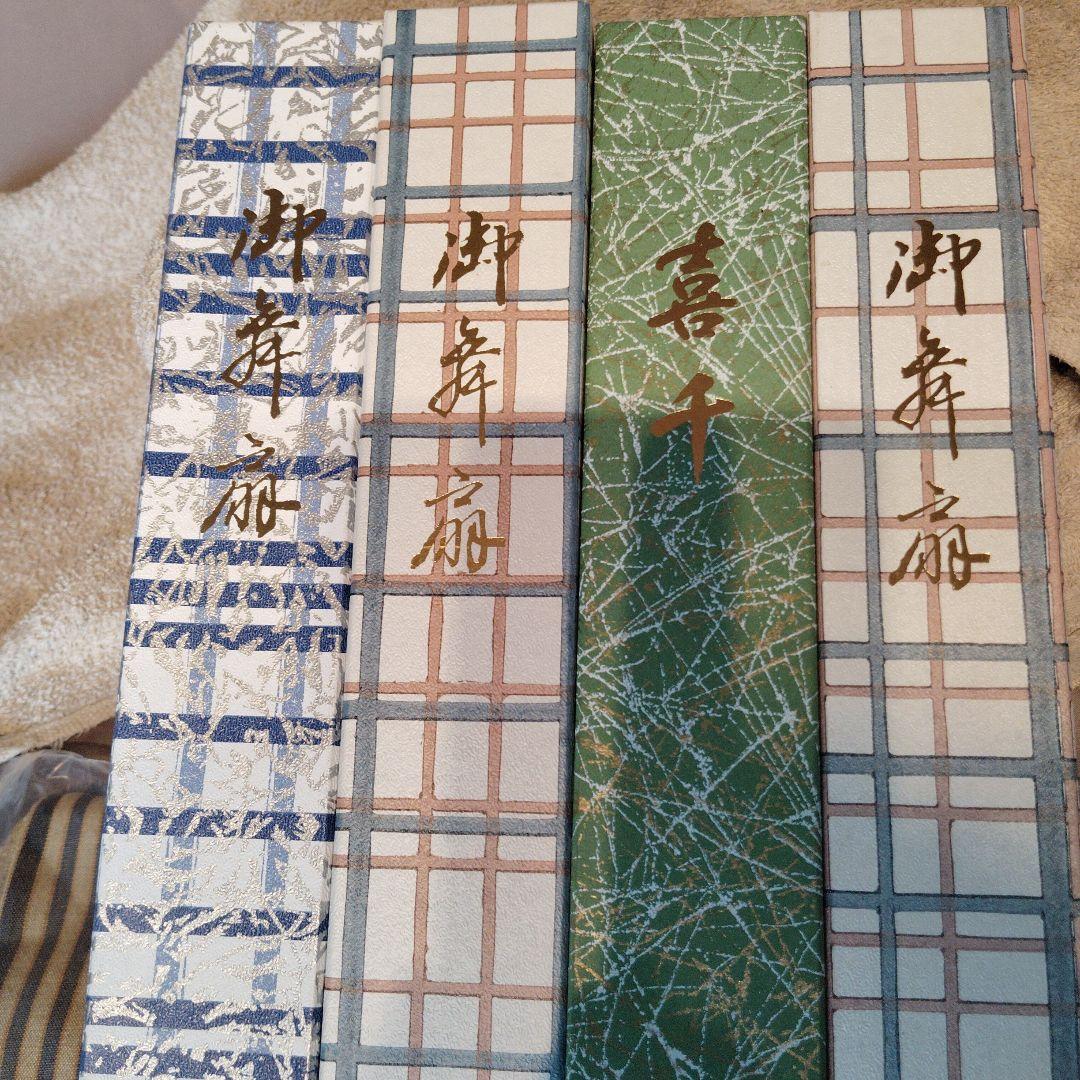 御舞扇
御舞扇
喜千
御舞扇